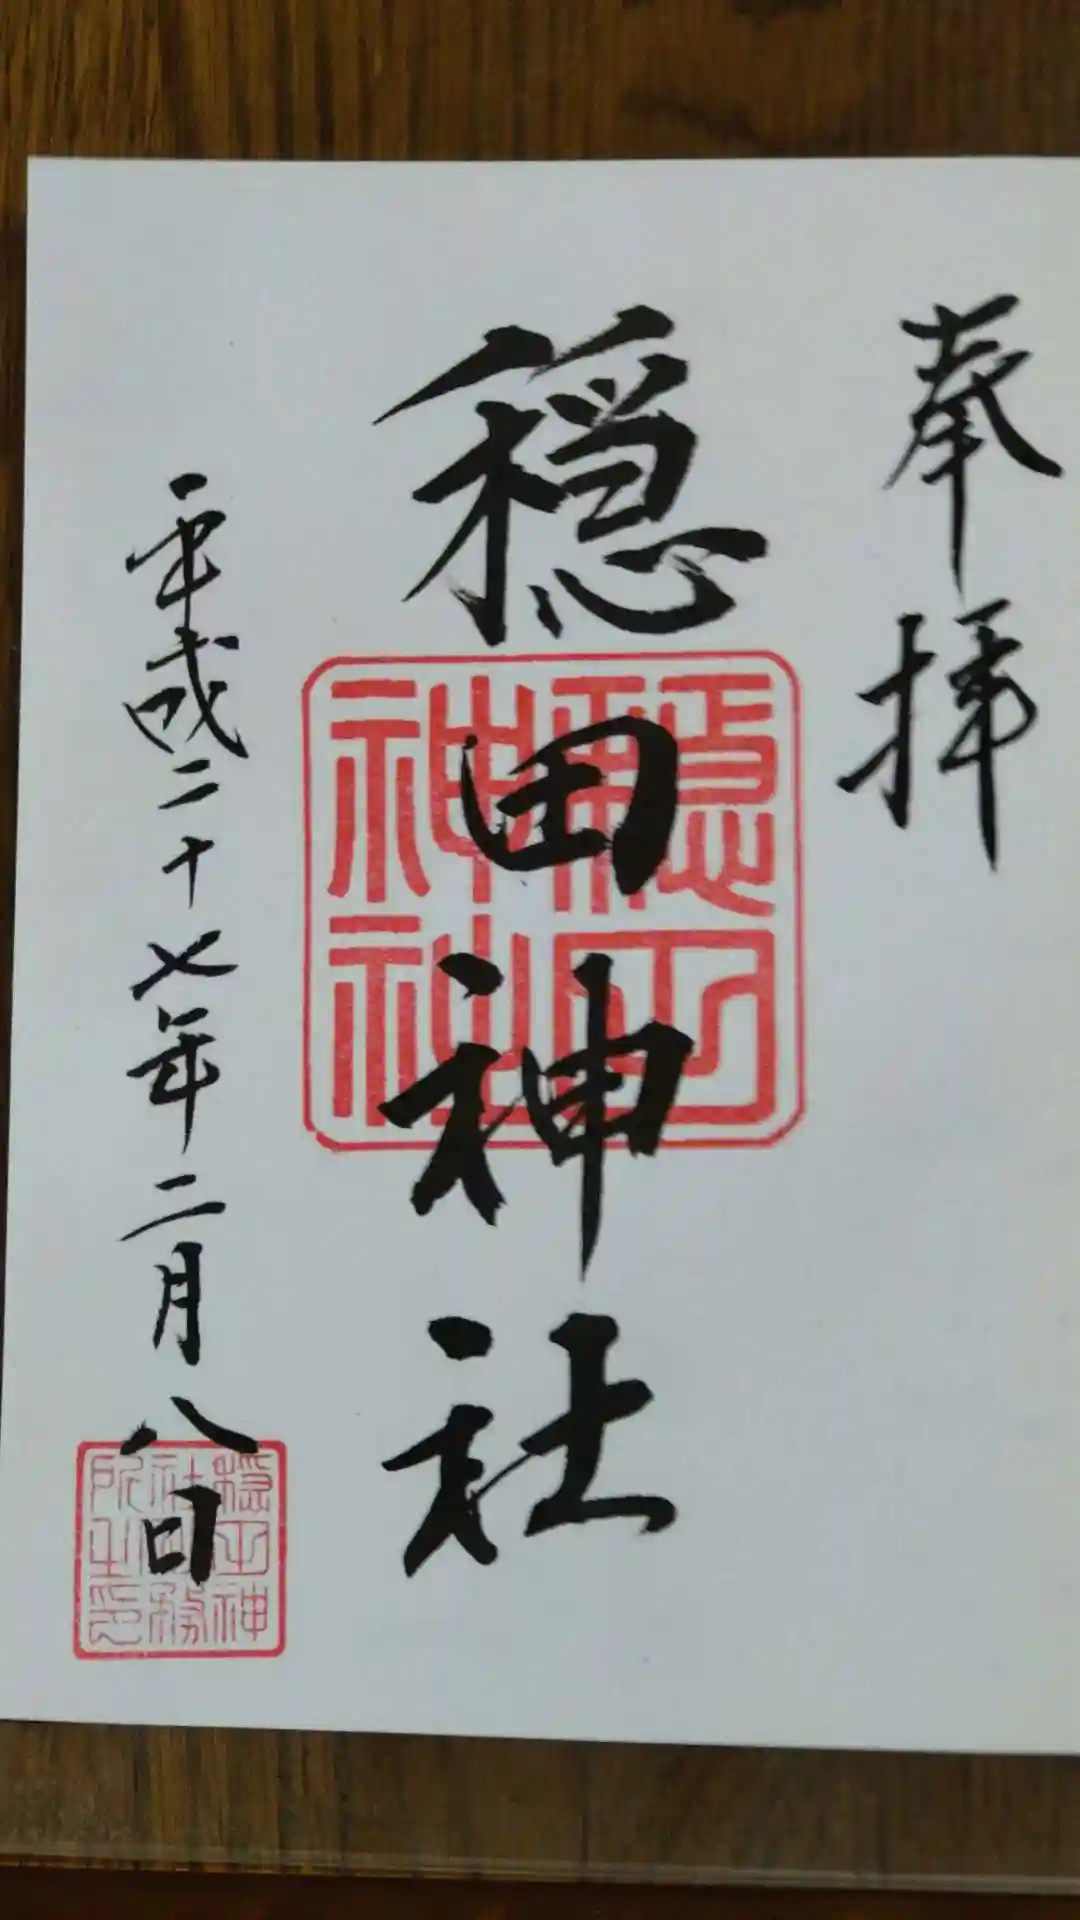 奉拝
穏田神社
平成二十七年二月八日
穏田
神社
穏田神
社社務
所之印